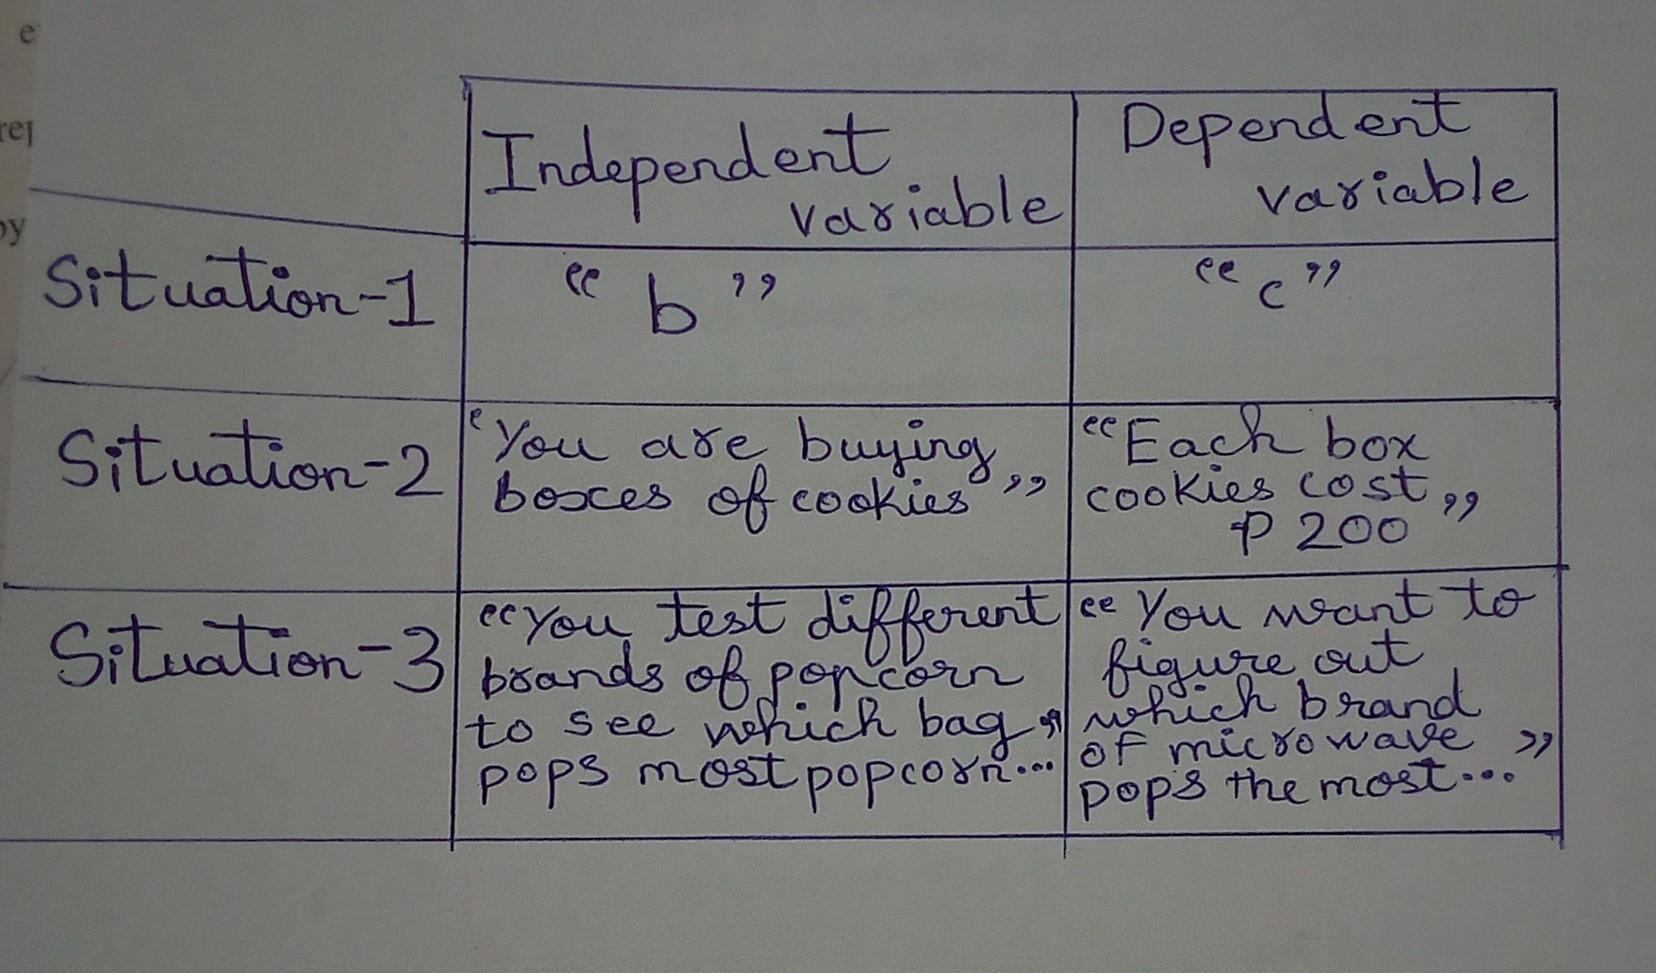 e
rej
by
Independent
variable
Dependent
variable
Situation-1
“ b ”
“ c ”
Situation-2
‘You are buying
boxes of cookies”
“Each box
cookies cost ”
₱ 200
Situation-3
“You test different
brands of popcorn
to see which bag ”
pops most popcorn...
“ You want to
figure out
which brand
of microwave ”
pops the most...